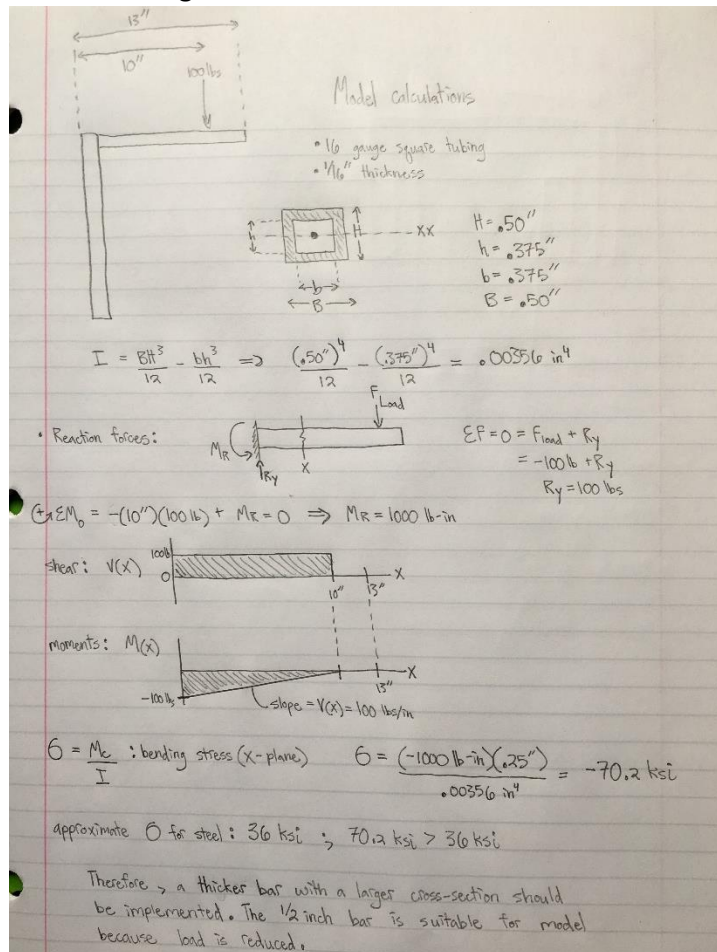 13"
10"
100 lbs
Model calculations
• 16 gauge square tubing
• 1/16" thickness
h
H
XX
b
B
H = .50"
h = .375"
b = .375"
B = .50"
I = BH³/12 - bh³/12 => (.50")⁴/12 - (.375")⁴/12 = .00356 in⁴
• Reaction forces:
F Load
MR
Ry
X
ΣF = 0 = Fload + Ry
= -100 lb + Ry
Ry = 100 lbs
+ ΣM₀ = -(10")(100 lb) + MR = 0 => MR = 1000 lb-in
shear: V(X)
100lb
0
10"
13"
X
moments: M(X)
-100 lbs
13"
X
slope = V(x) = 100 lbs/in
σ = Mc/I : bending stress (X-plane) σ = (-1000 lb-in)(.25")/.00356 in⁴ = -70.2 ksi
approximate σ for steel: 36 ksi ; 70.2 ksi > 36 ksi
Therefore, a thicker bar with a larger cross-section should
be implemented. The 1/2 inch bar is suitable for model
because load is reduced.